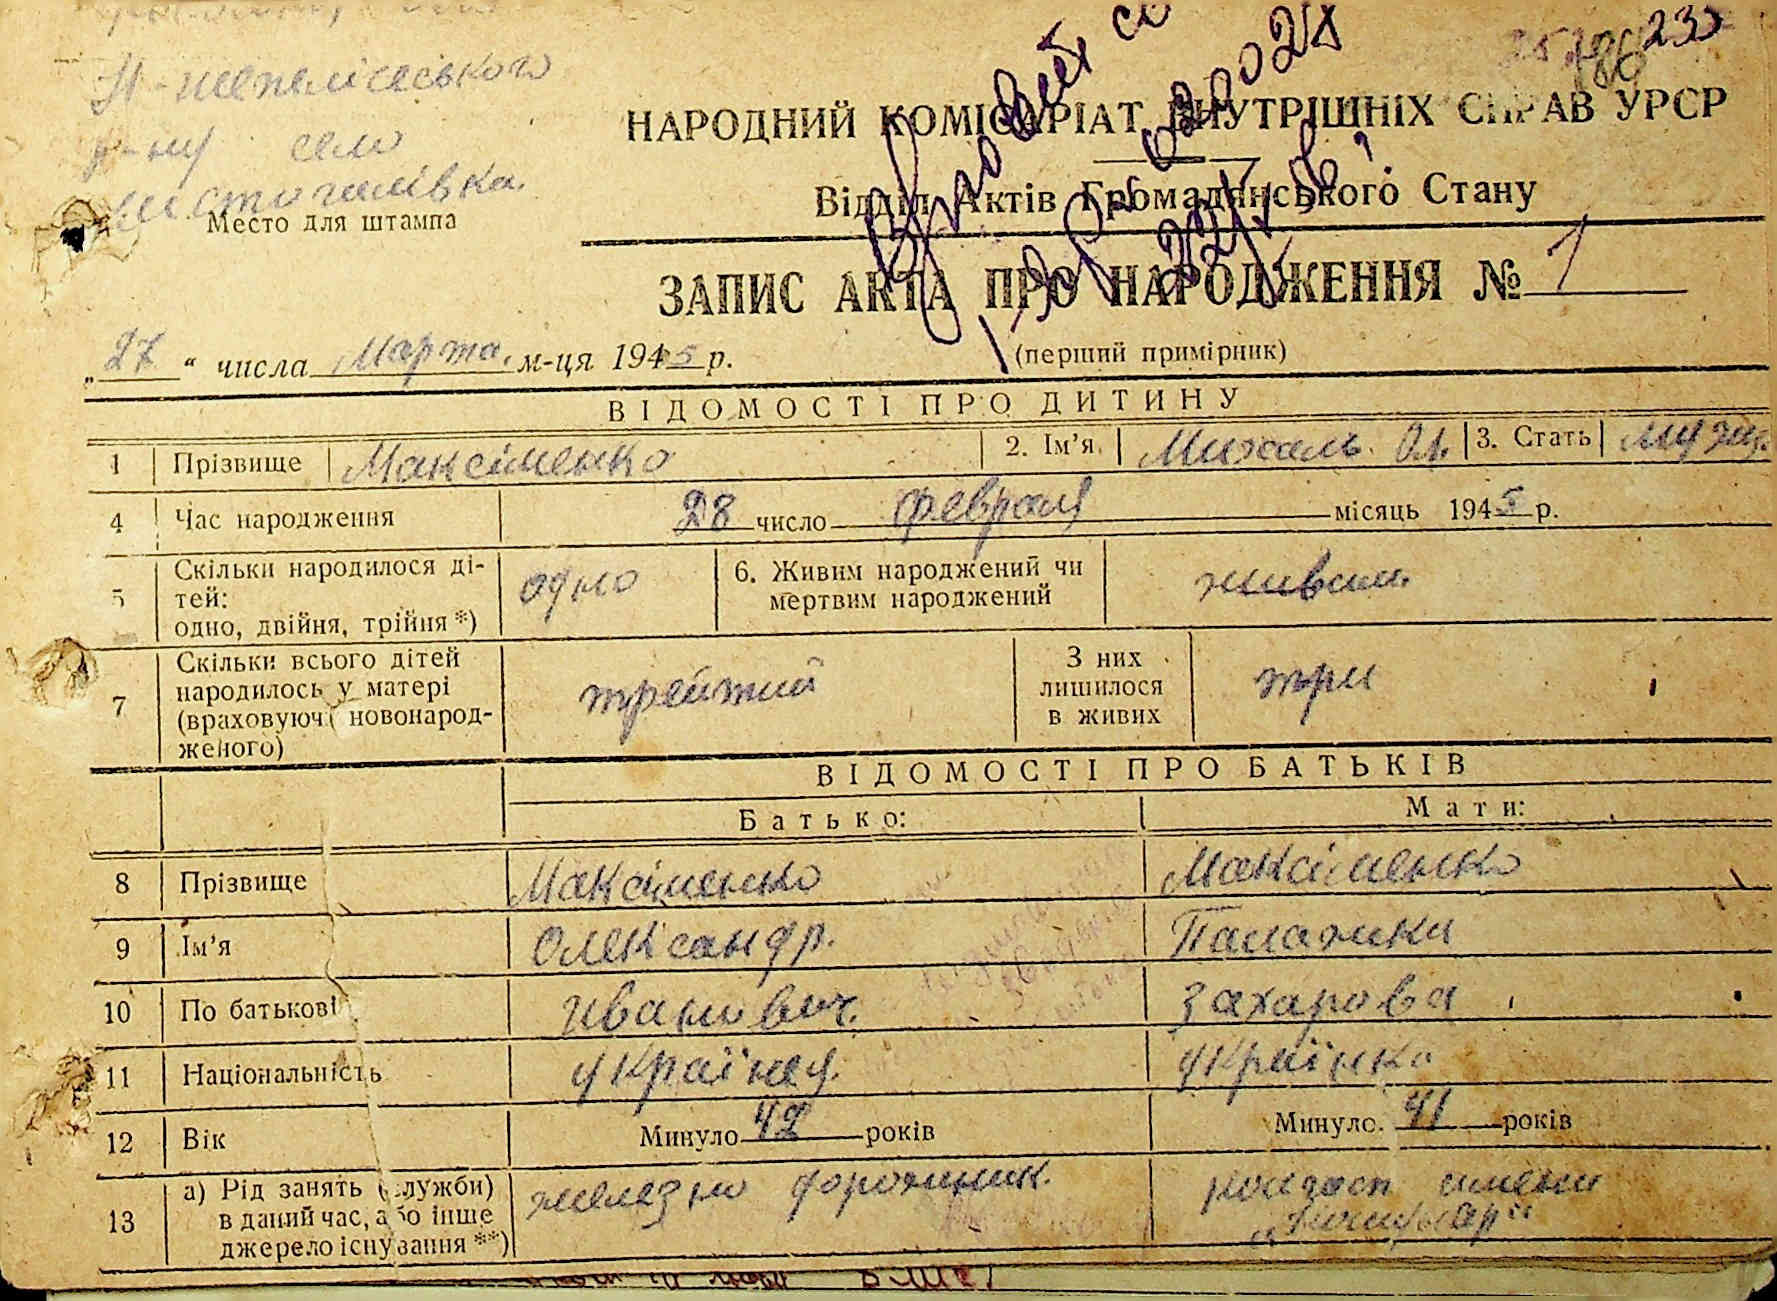 Н-шепелісського
р-ну село
Товстоголівка.
Место для штампа
186 233
НАРОДНИЙ КОМІСАРІАТ ВНУТРІШНІХ СПРАВ УРСР
Відділ Актів Громадянського Стану
ЗАПИС АКТА ПРО НАРОДЖЕННЯ № 1
„27“ числа Марта. м-ця 1945 р.
(перший примірник)
ВІДОМОСТІ ПРО ДИТИНУ
1 Прізвище Максіменко 2. Ім'я Михаль. Ол. 3. Стать муж.
4 Час народження 28 число февраля місяць 1945 р.
5 Скільки народилося ді-
тей:
одно, двійня, трійня *) одно
6. Живим народжений чи
мертвим народжений живим
7 Скільки всього дітей
народилось у матері
(враховуючи новонарод-
женого) трейтий
З них
лишилося
в живих три
ВІДОМОСТІ ПРО БАТЬКІВ
Батько: Мати:
8 Прізвище Максіменко Максіменко
9 Ім'я Олександр. Палажка
10 По батькові Иванович. Захарова
11 Національність українец. українка
12 Вік Минуло 42 років Минуло 41 років
13 а) Рід занять (служби)
в даний час, або інше
джерело існування **)
железно дорожник.
имени